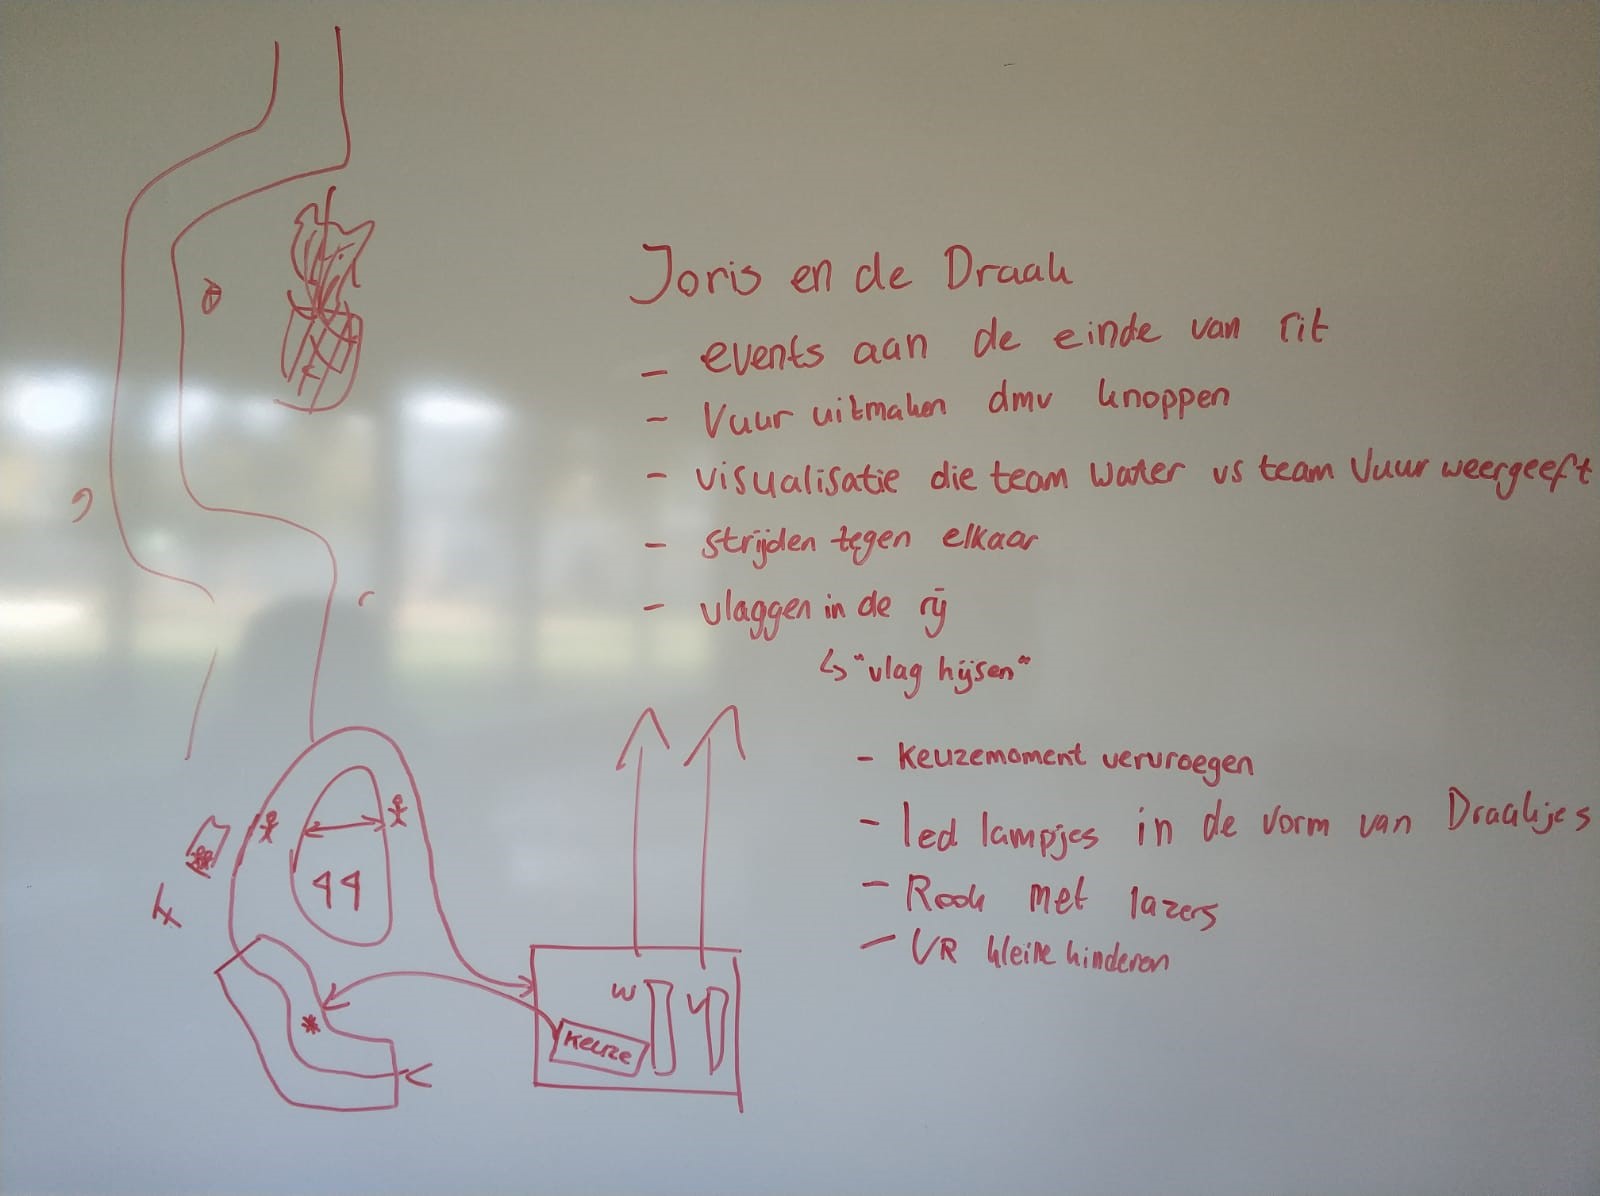 Joris en de Draak
- events aan de einde van rit
- Vuur uitmaken dmv knoppen
- visualisatie die team water vs team Vuur weergeeft
- strijden tegen elkaar
- vlaggen in de rij
↳ "vlag hijsen"
- keuzemoment vervroegen
- led lampjes in de vorm van Draakjes
- Rook met lazers
- VR kleine kinderen
W V
keuze